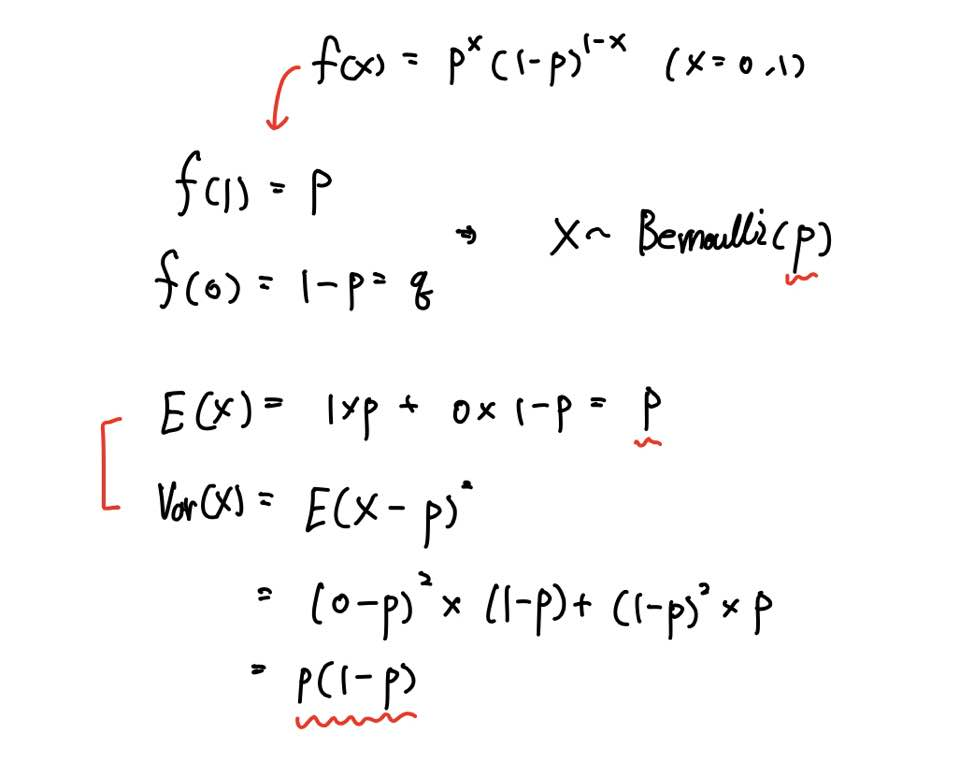 f(x) = p^x (1-p)^{1-x} (x=0,1)
f(1) = p
f(0) = 1-p = q
⇒ X ~ Bernoulli(p)
E(X) = 1×p + 0×1-p = p
Var(X) = E(X-p)^2
= (0-p)^2 × (1-p) + (1-p)^2 × p
= p(1-p)